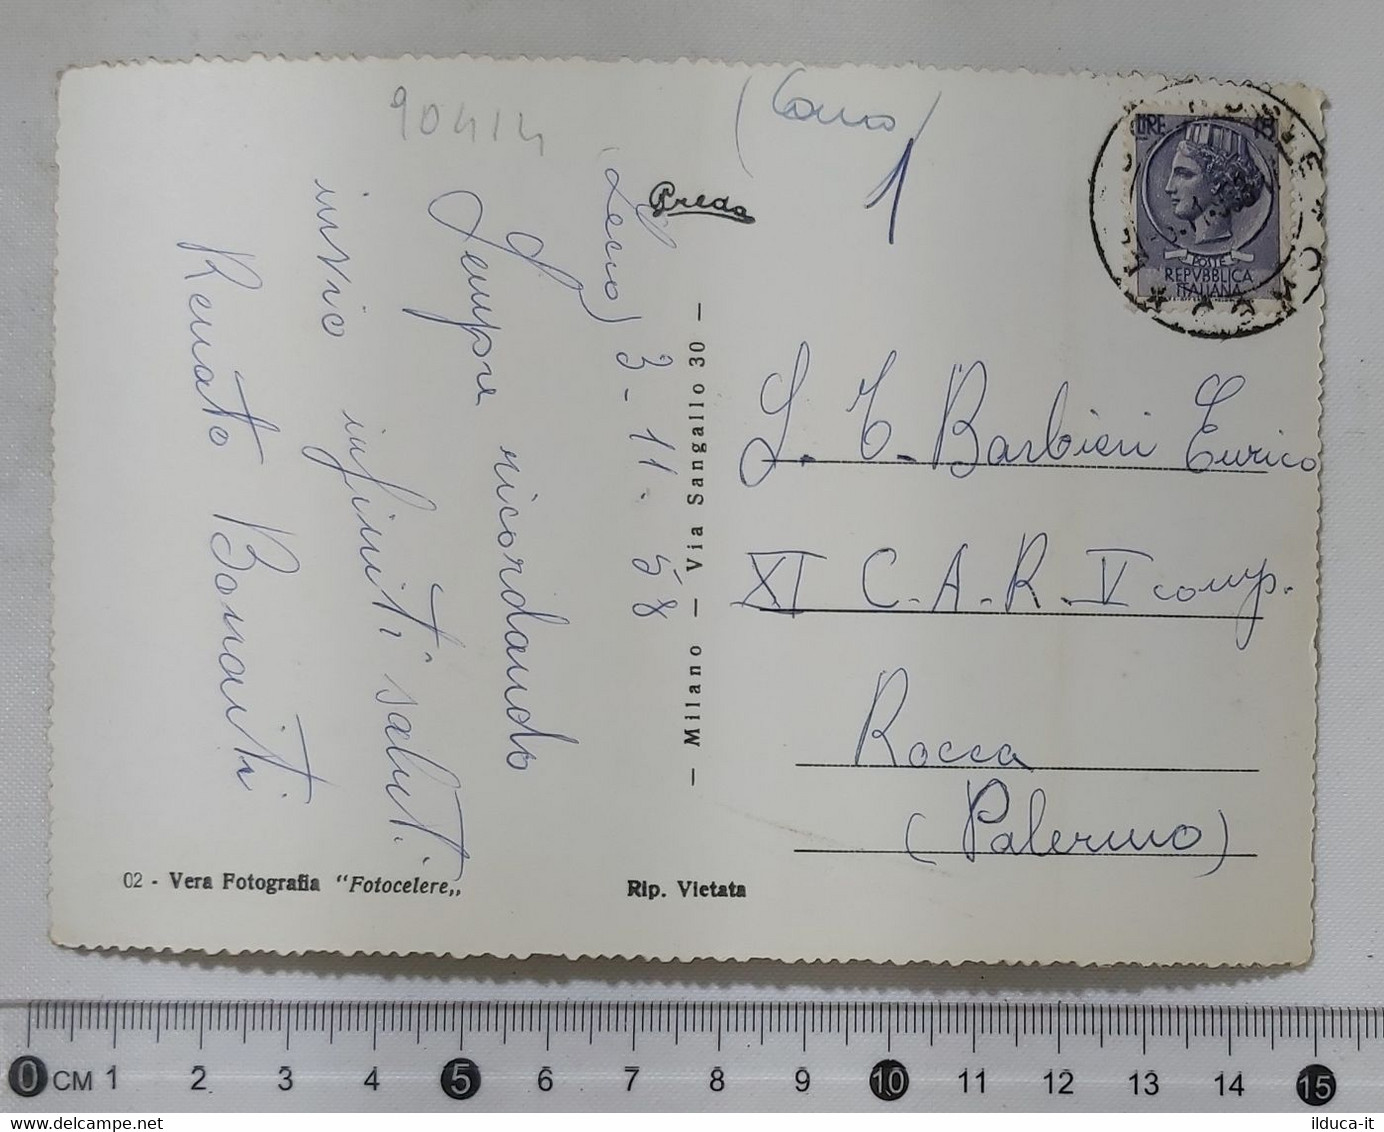 90414
(Como)
1
(Lecco) 3-11-58
Sempre ricordando
invio infiniti saluti
Renato Bonaiti
Preda
— Milano — Via Sangallo 30 —
LIRE 15
POSTE
REPVBBLICA
ITALIANA
S. T. Barbieri Enrico
XI C.A.R. V comp.
Rocca
(Palermo)
02 - Vera Fotografia "Fotocelere„
Rip. Vietata
0 CM 1 2 3 4 5 6 7 8 9 10 11 12 13 14 15
ilduca-it